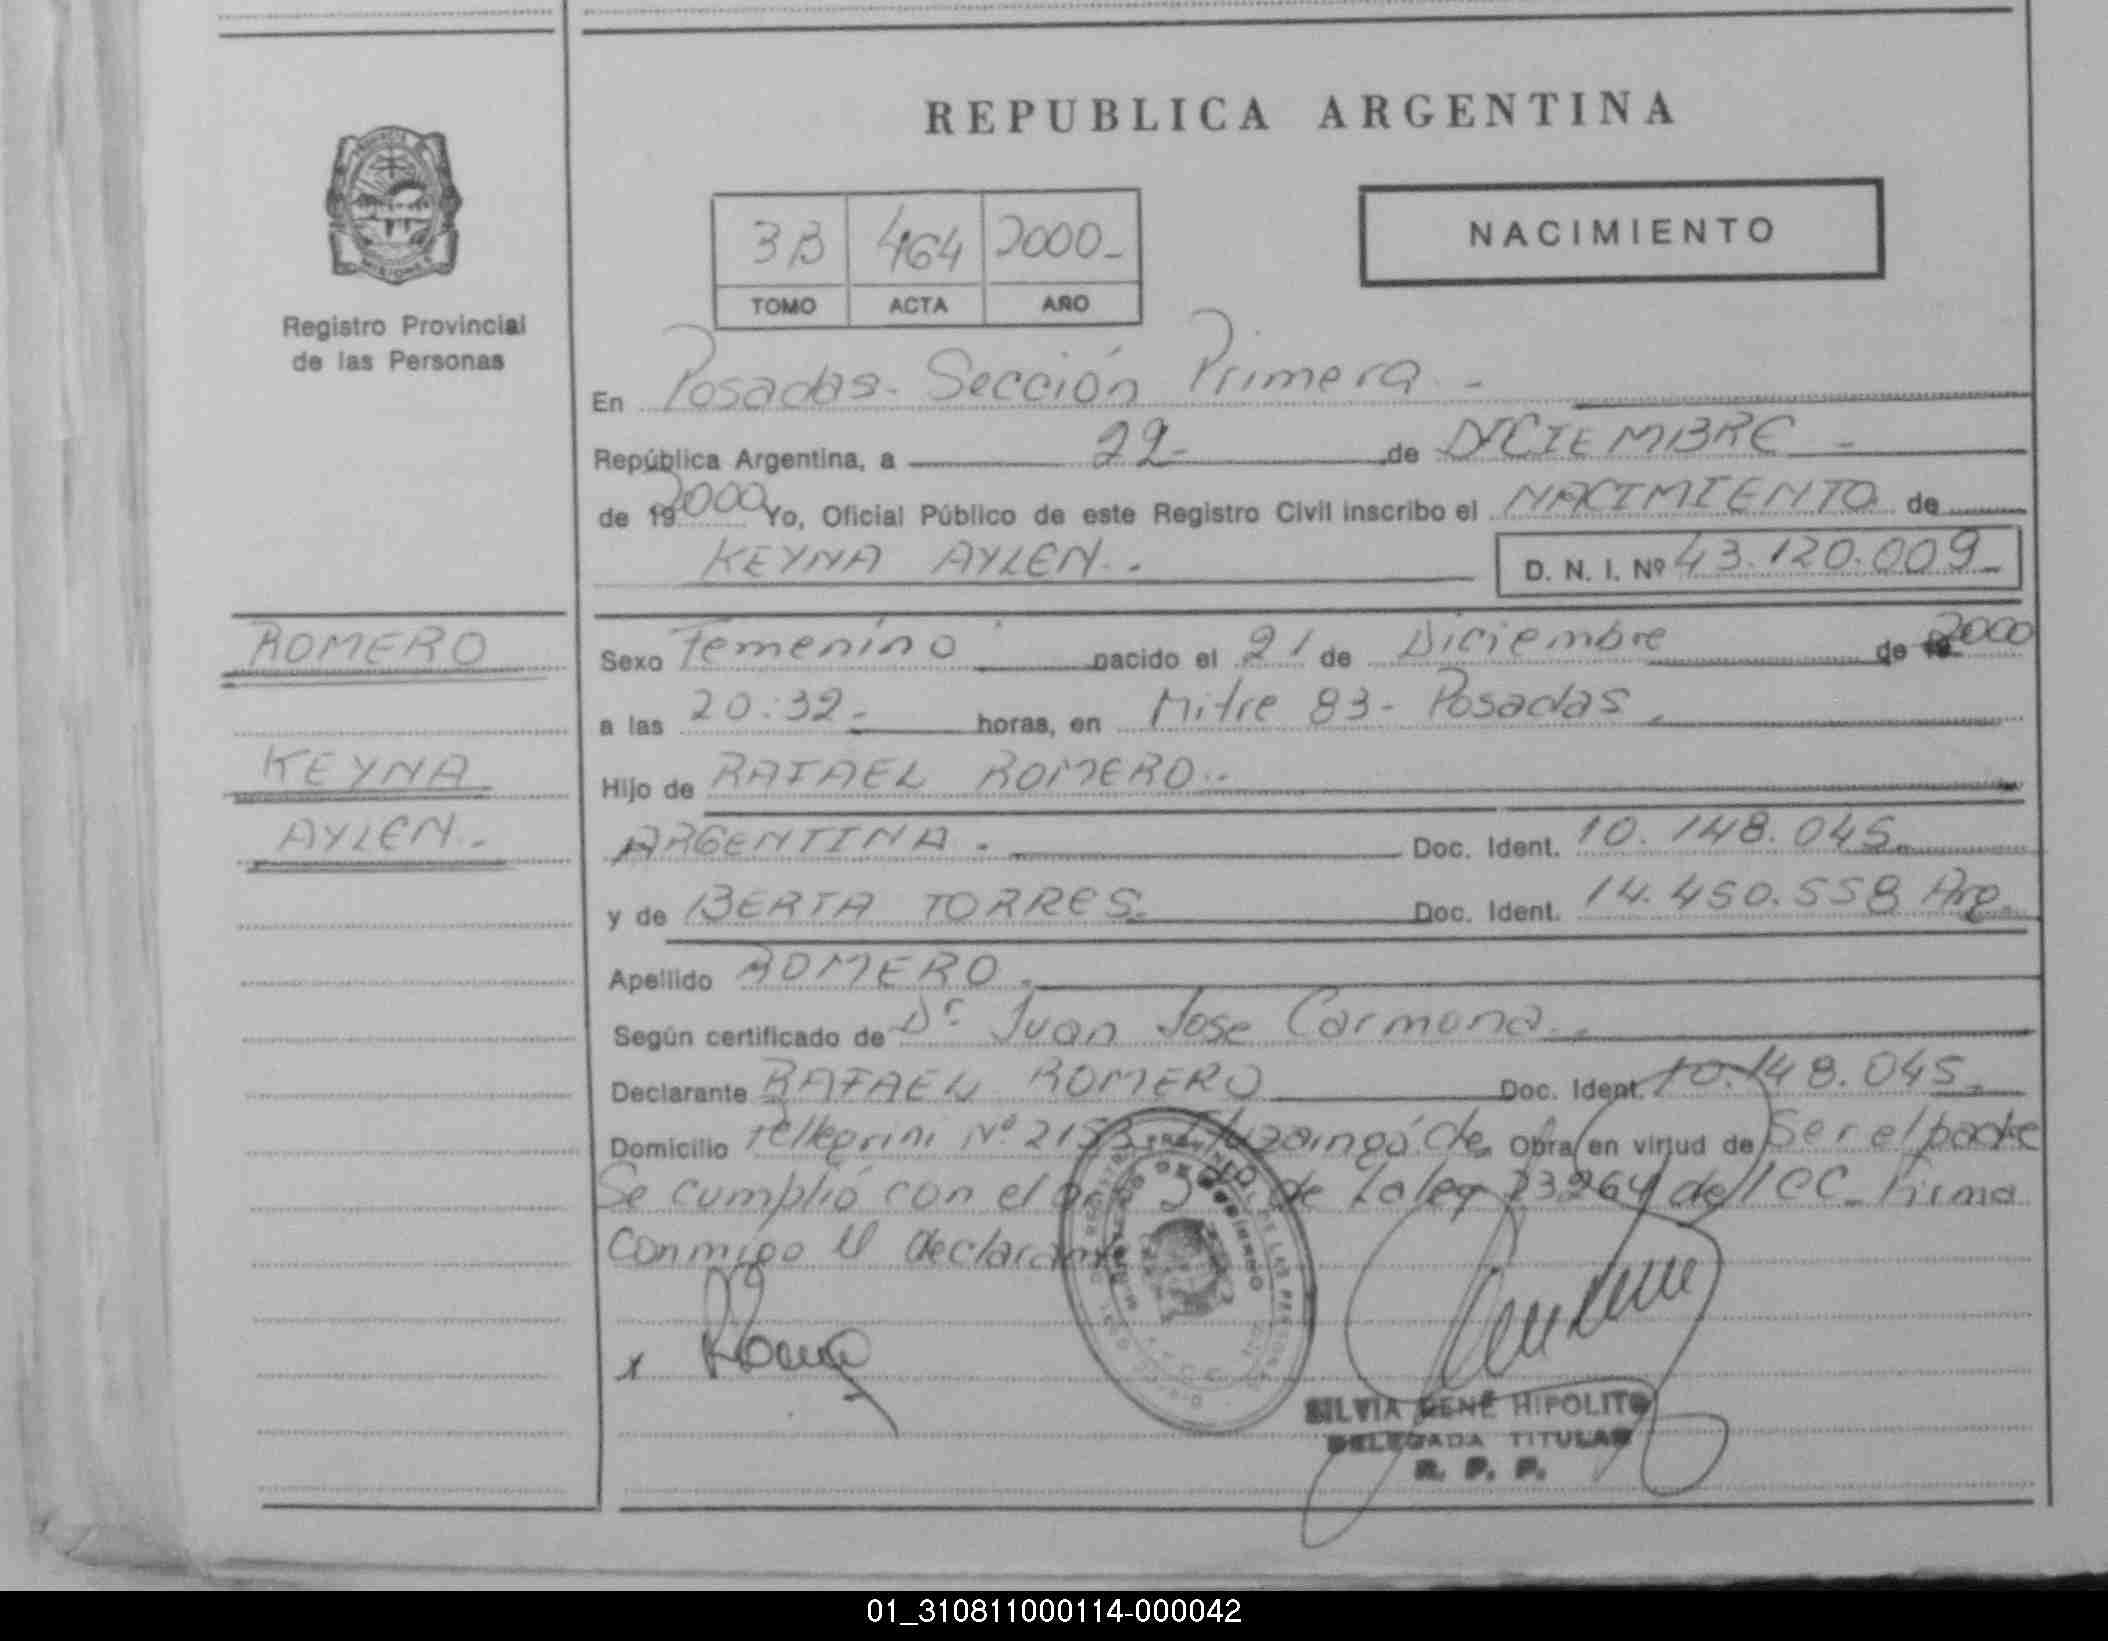 REPUBLICA ARGENTINA
NACIMIENTO
3B 464 2000-
TOMO ACTA AÑO
MISIONES
Registro Provincial
de las Personas
En Posadas- Sección Primera -
República Argentina, a 22- de DICIEMBRE -
de 19 2000 Yo, Oficial Público de este Registro Civil inscribo el NACIMIENTO de
KEYNA AYLEN.
D. N. I. Nº 43.120.009-
ROMERO
KEYNA
AYLEN.-
Sexo Femenino nacido el 21 de Diciembre de 2000
a las 20:32- horas, en Mitre 83- Posadas
Hijo de RAFAEL ROMERO.-
ARGENTINA. Doc. Ident. 10.148.045
y de BERTA TORRES. Doc. Ident. 14.450.558 Arg.
Apellido ROMERO.
Según certificado de Dr Juan Jose Carmona.
Declarante RAFAEL ROMERO Doc. Ident. 10.148.045
Domicilio Pellegrini Nº Ituzaingó Ctes Obra en virtud de Ser el padre
Se cumplió con el de La ley 23264 del CC- Firma
Conmigo el declarante
x
SILVIA RENÉ HIPOLITO
DELEGADA TITULAR
R. P. P.
01_310811000114-000042